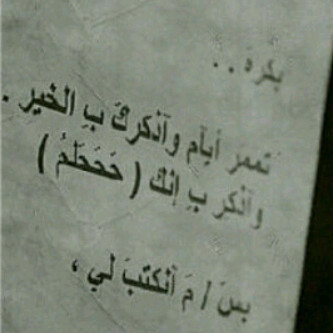 بكرة . .
تممر أيآم وآذكركَ بِ الخير .
وآذكر بِ إنك ( حَححَلمُ )
بسَ / مَ آنكتبَ لي ،